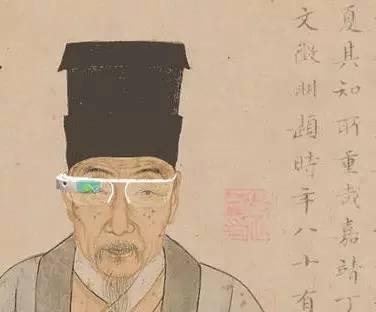 夏其知所重哉嘉靖丁
文徵明題時年八十有